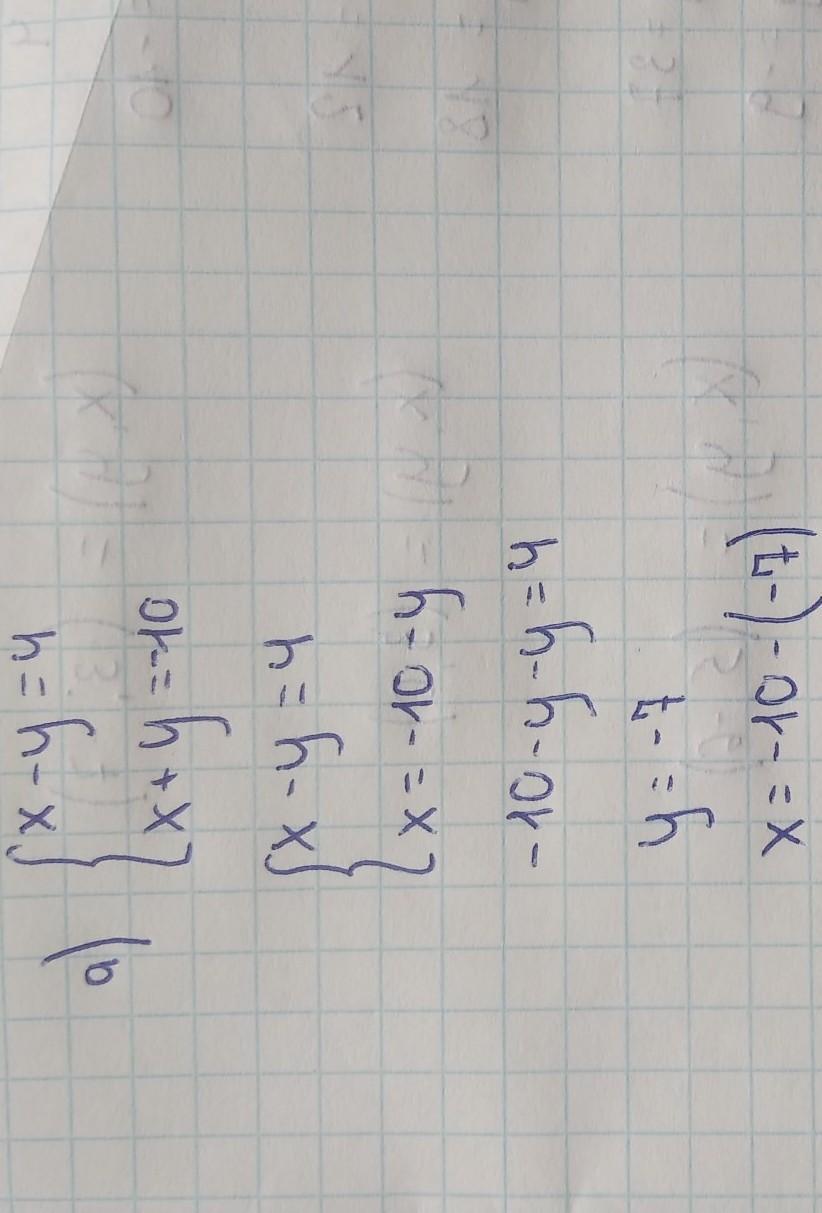 a) { x - y = 4
x + y = -10
{ x - y = 4
x = -10 - y
-10 - y - y = 4
y = -7
x = -10 - (-7)